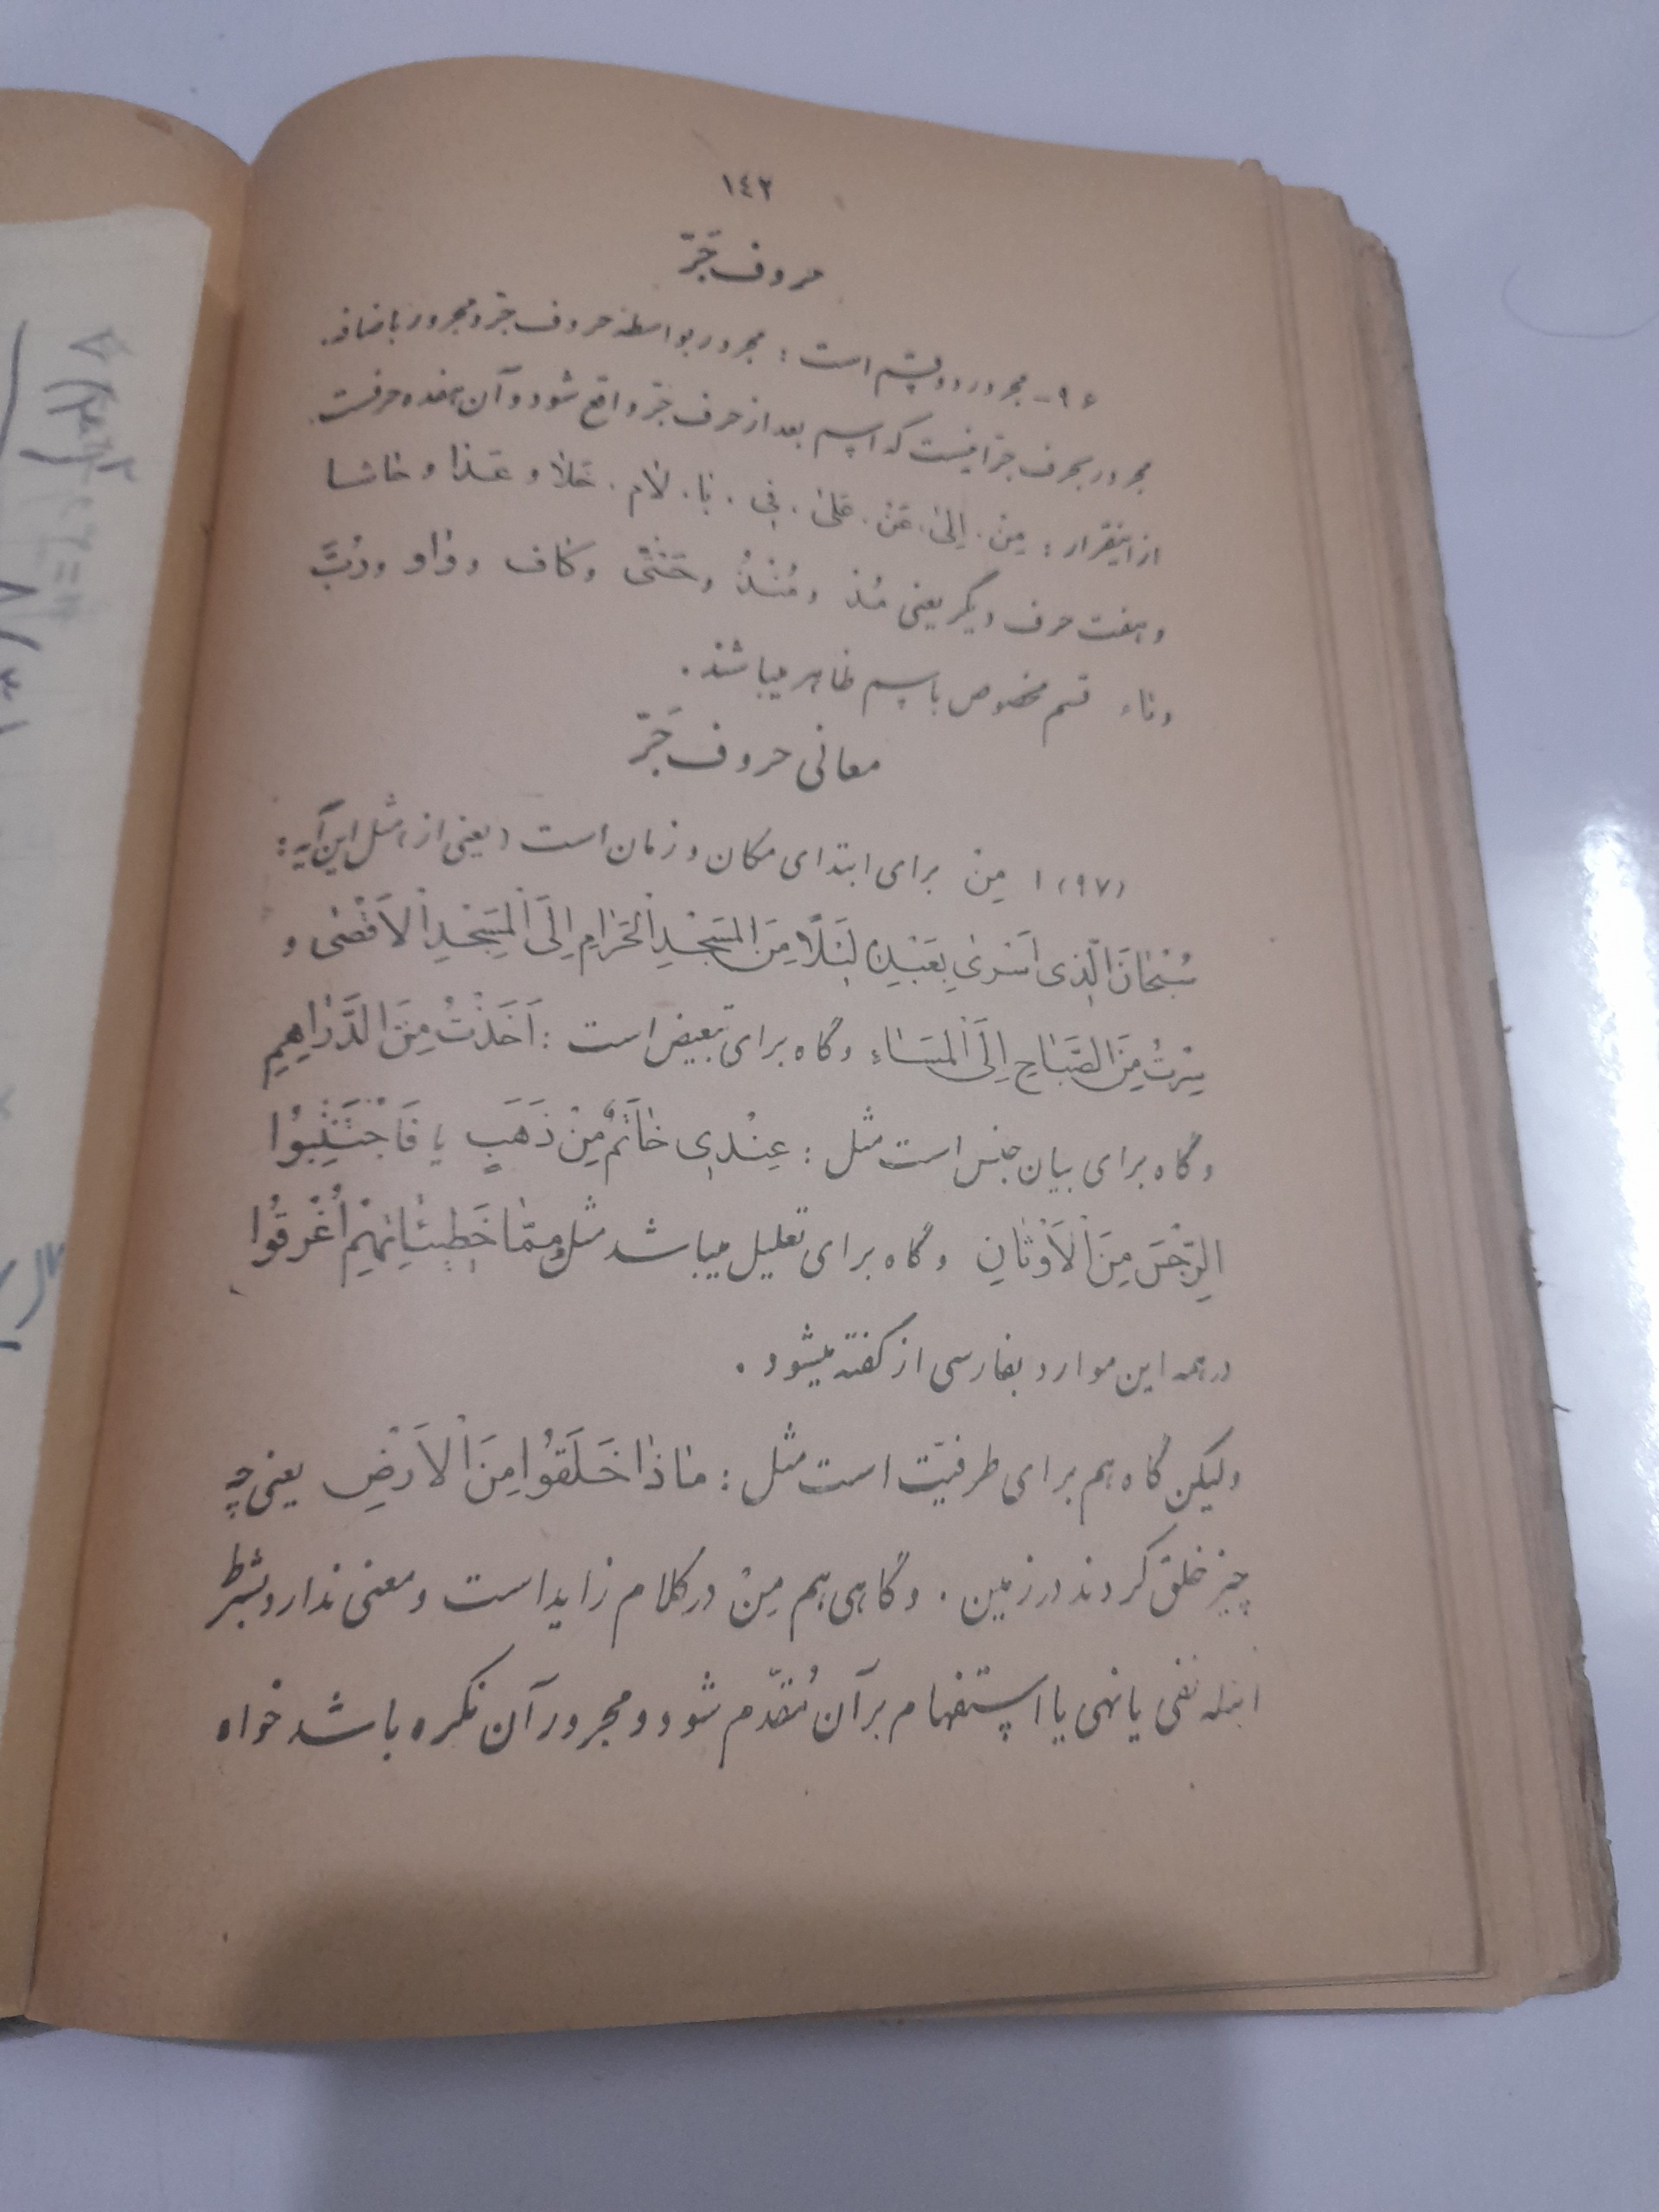 ١٤٢
حروف جَرّ
٩٦- مجرور دو قسم است : مجرور بواسطه حروف جرّ و مجرور باضافه .
مجرور بحرف جرّ آنیست که اسم بعد از حرف جرّ واقع شود و آن هفده حرفست .
از اینقرار : مِنْ . اِلیٰ . عَنْ . عَلیٰ . فی . بٰا . لٰام . خَلٰا و عَدٰا و حٰاشٰا
و هفت حرف دیگر یعنی مُذ و مُنْذُ و حَتّیٰ و کاف و وٰاو و رُبَّ
و تاء قسم مخصوص باسم ظاهر میباشند .
معانی حروف جَرّ
(٩٧) ١ مِنْ برای ابتدای مکان و زمان است (یعنی از) مثل این آیه :
سُبْحٰانَ الَّذی اَسْریٰ بِعَبْدِهِ لَیْلًا مِنَ الْمَسْجِدِ الْحَرٰامِ اِلَی الْمَسْجِدِ الْاَقْصیٰ و
سِرْتُ مِنَ الصَّبٰاحِ اِلَی الْمَسٰاءِ و گاه برای تبعیض است : اَخَذْتُ مِنَ الدَّرٰاهِیمِ
و گاه برای بیان جنس است مثل : عِنْدی خٰاتَمٌ مِنْ ذَهَبٍ یا فَاجْتَنِبُوا
الرِّجْسَ مِنَ الْاَوْثٰانِ و گاه برای تعلیل میباشد مثل مِمّٰا خَطیئٰاتِهِمْ اُغْرِقُوا
در همه این موارد بفارسی از گفته میشود .
ولیکن گاه هم برای ظرفیّت است مثل : مٰاذٰا خَلَقُوا مِنَ الْاَرْضِ یعنی چه
چیز خلق کردند در زمین . و گاهی هم مِنْ در کلام زاید است و معنی ندارد بشرط
اینکه نفی یا نهی یا استفهام بر آن مُقدّم شود و مجرور آن نکره باشد خواه